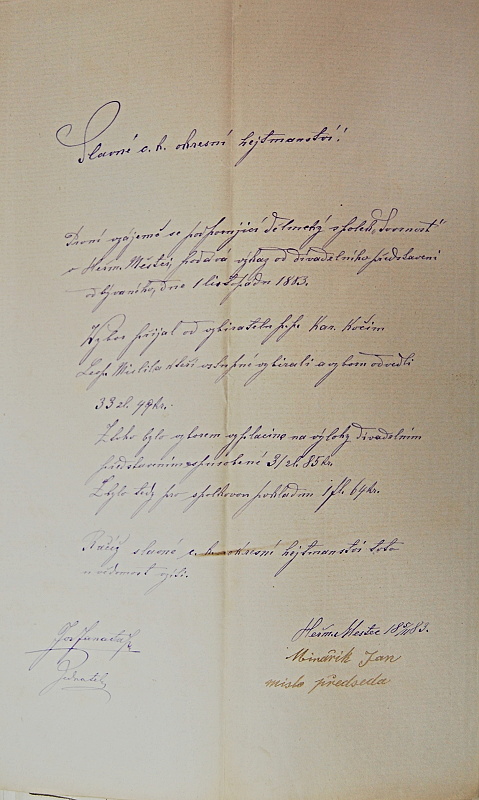 Slavné c. k. okresní hejtmanství!
První vzájemě se podporující dělnický spolek „Svornost"
v Heřm. Městci, podává výkaz od divadelního představení
odbývaného, dne 1 listopadu 1883.
Výbor přijal od vybíratelů p.p. Kar. Kočím
Leop. kteří vstupné vybírali a výboru odvedli
33 zl. 49 kr.
Z toho bylo výborem vyplaceno na výlohy divadelním
představením způsobené 31 zl. 85 kr.
Zbylo tedy pro spolkovou pokladnu 1 fl. 64 kr.
Račiž slavné c. k. okresní hejtmanství toto
u vědomost vzíti.
Heřm. Městec 18 5/11 83.
Minařík Jan
místo předseda
Jednatel